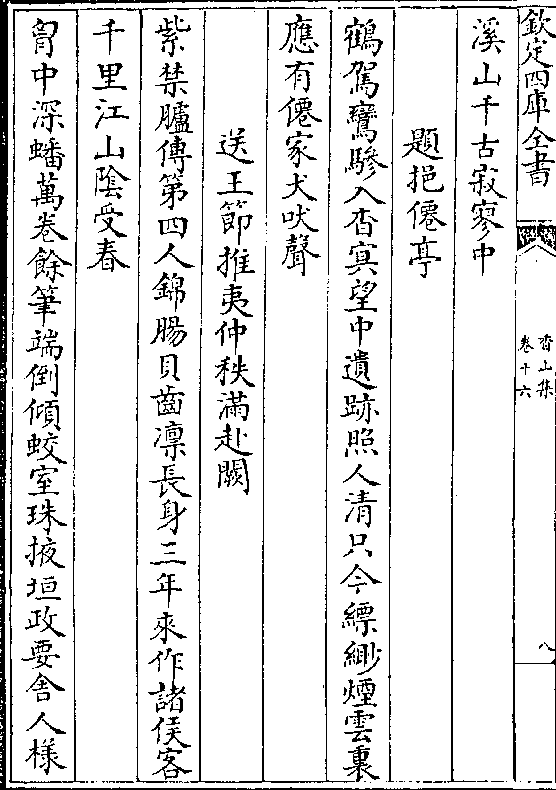 欽定四庫全書
香山集
卷十六
八
溪山千古寂寥中
題挹僊亭
鶴駕鸞驂入杳冥望中遺跡照人清只今縹緲煙雲裏
應有僊家犬吠聲
送王節推夷仲秩滿赴闕
紫禁臚傳第四人錦腸貝齒凛長身三年來作諸侯客
千里江山陰受春
胷中深蟠萬卷餘筆端倒傾蛟室珠掖垣政要舍人樣